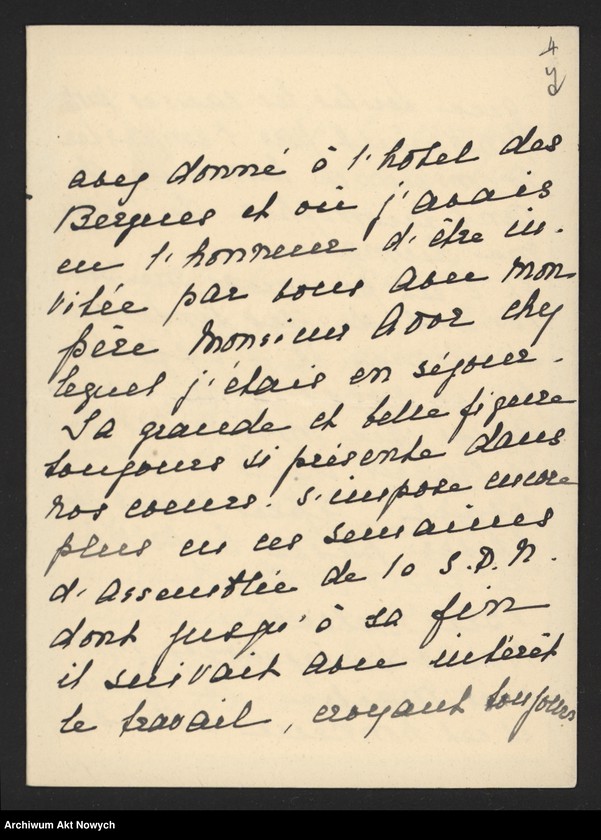 4
avez donné à l'hôtel des
Bergues et où j'avais
eu l'honneur d'être in-
vitée par vous avec mon
père Monsieur Ador chez
lequel j'étais en séjour.
Sa grande et belle figure
toujours si présente dans
nos coeurs s'impose encore
plus en ces semaines
d'Assemblée de la S.D.N.
dont jusqu'à sa fin
il suivait avec intérêt
le travail, croyant toujours
Archiwum Akt Nowych